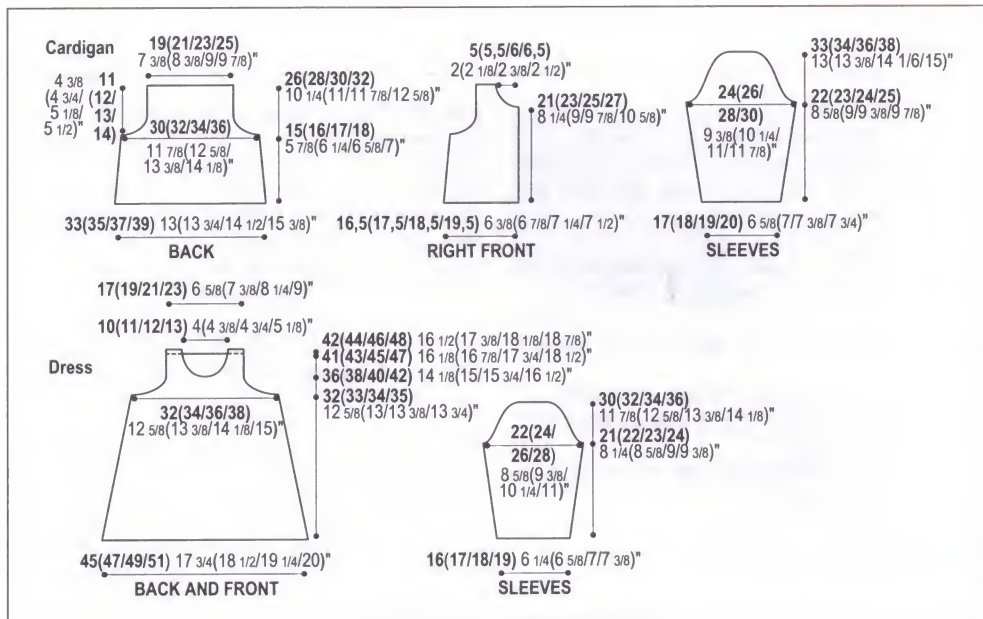 Cardigan
19(21/23/25)
7 3/8(8 3/8/9/9 7/8)"
4 3/8 11
(4 3/4/ (12/
5 1/8/ 13/
5 1/2)" 14)
30(32/34/36)
11 7/8(12 5/8/
13 3/8/14 1/8)"
26(28/30/32)
10 1/4(11/11 7/8/12 5/8)"
15(16/17/18)
5 7/8(6 1/4/6 5/8/7)"
33(35/37/39) 13(13 3/4/14 1/2/15 3/8)"
BACK
5(5,5/6/6,5)
2(2 1/8/2 3/8/2 1/2)"
21(23/25/27)
8 1/4(9/9 7/8/10 5/8)"
16,5(17,5/18,5/19,5) 6 3/8(6 7/8/7 1/4/7 1/2)"
RIGHT FRONT
24(26/
28/30)
9 3/8(10 1/4/
11/11 7/8)"
33(34/36/38)
13(13 3/8/14 1/6/15)"
22(23/24/25)
8 5/8(9/9 3/8/9 7/8)"
17(18/19/20) 6 5/8(7/7 3/8/7 3/4)"
SLEEVES
Dress
17(19/21/23) 6 5/8(7 3/8/8 1/4/9)"
10(11/12/13) 4(4 3/8/4 3/4/5 1/8)"
32(34/36/38)
12 5/8(13 3/8/14 1/8/15)"
42(44/46/48) 16 1/2(17 3/8/18 1/8/18 7/8)"
41(43/45/47) 16 1/8(16 7/8/17 3/4/18 1/2)"
36(38/40/42) 14 1/8(15/15 3/4/16 1/2)"
32(33/34/35)
12 5/8(13/13 3/8/13 3/4)"
45(47/49/51) 17 3/4(18 1/2/19 1/4/20)"
BACK AND FRONT
22(24/
26/28)
8 5/8(9 3/8/
10 1/4/11)"
30(32/34/36)
11 7/8(12 5/8/13 3/8/14 1/8)"
21(22/23/24)
8 1/4(8 5/8/9/9 3/8)"
16(17/18/19) 6 1/4(6 5/8/7/7 3/8)"
SLEEVES